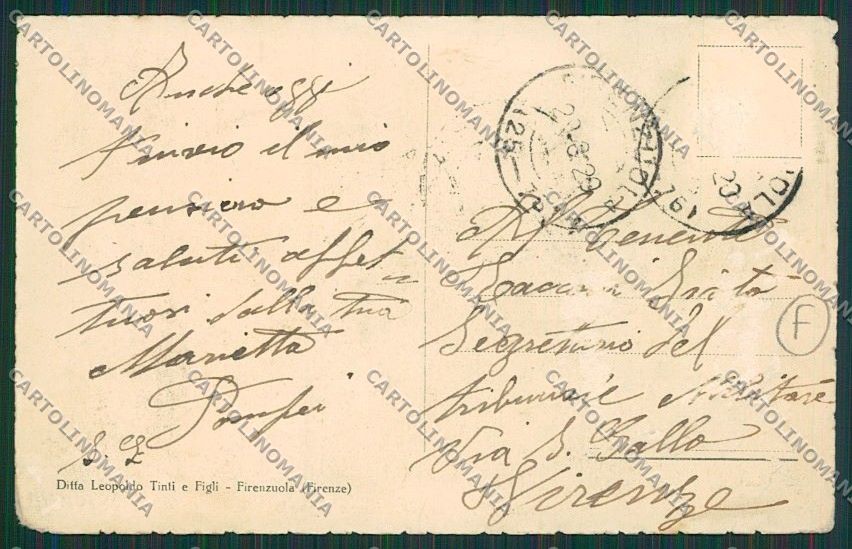 Anche oggi
t'invio il mio
pensiero e
saluti affet-
tuosi dalla tua
Marietta
Pompei
Ditta Leopoldo Tinti e Figli - Firenzuola (Firenze)
20.8.29
Segretario del
tribunale Militare
Via S. Gallo
Firenze
F
CARTOLINOMANIA